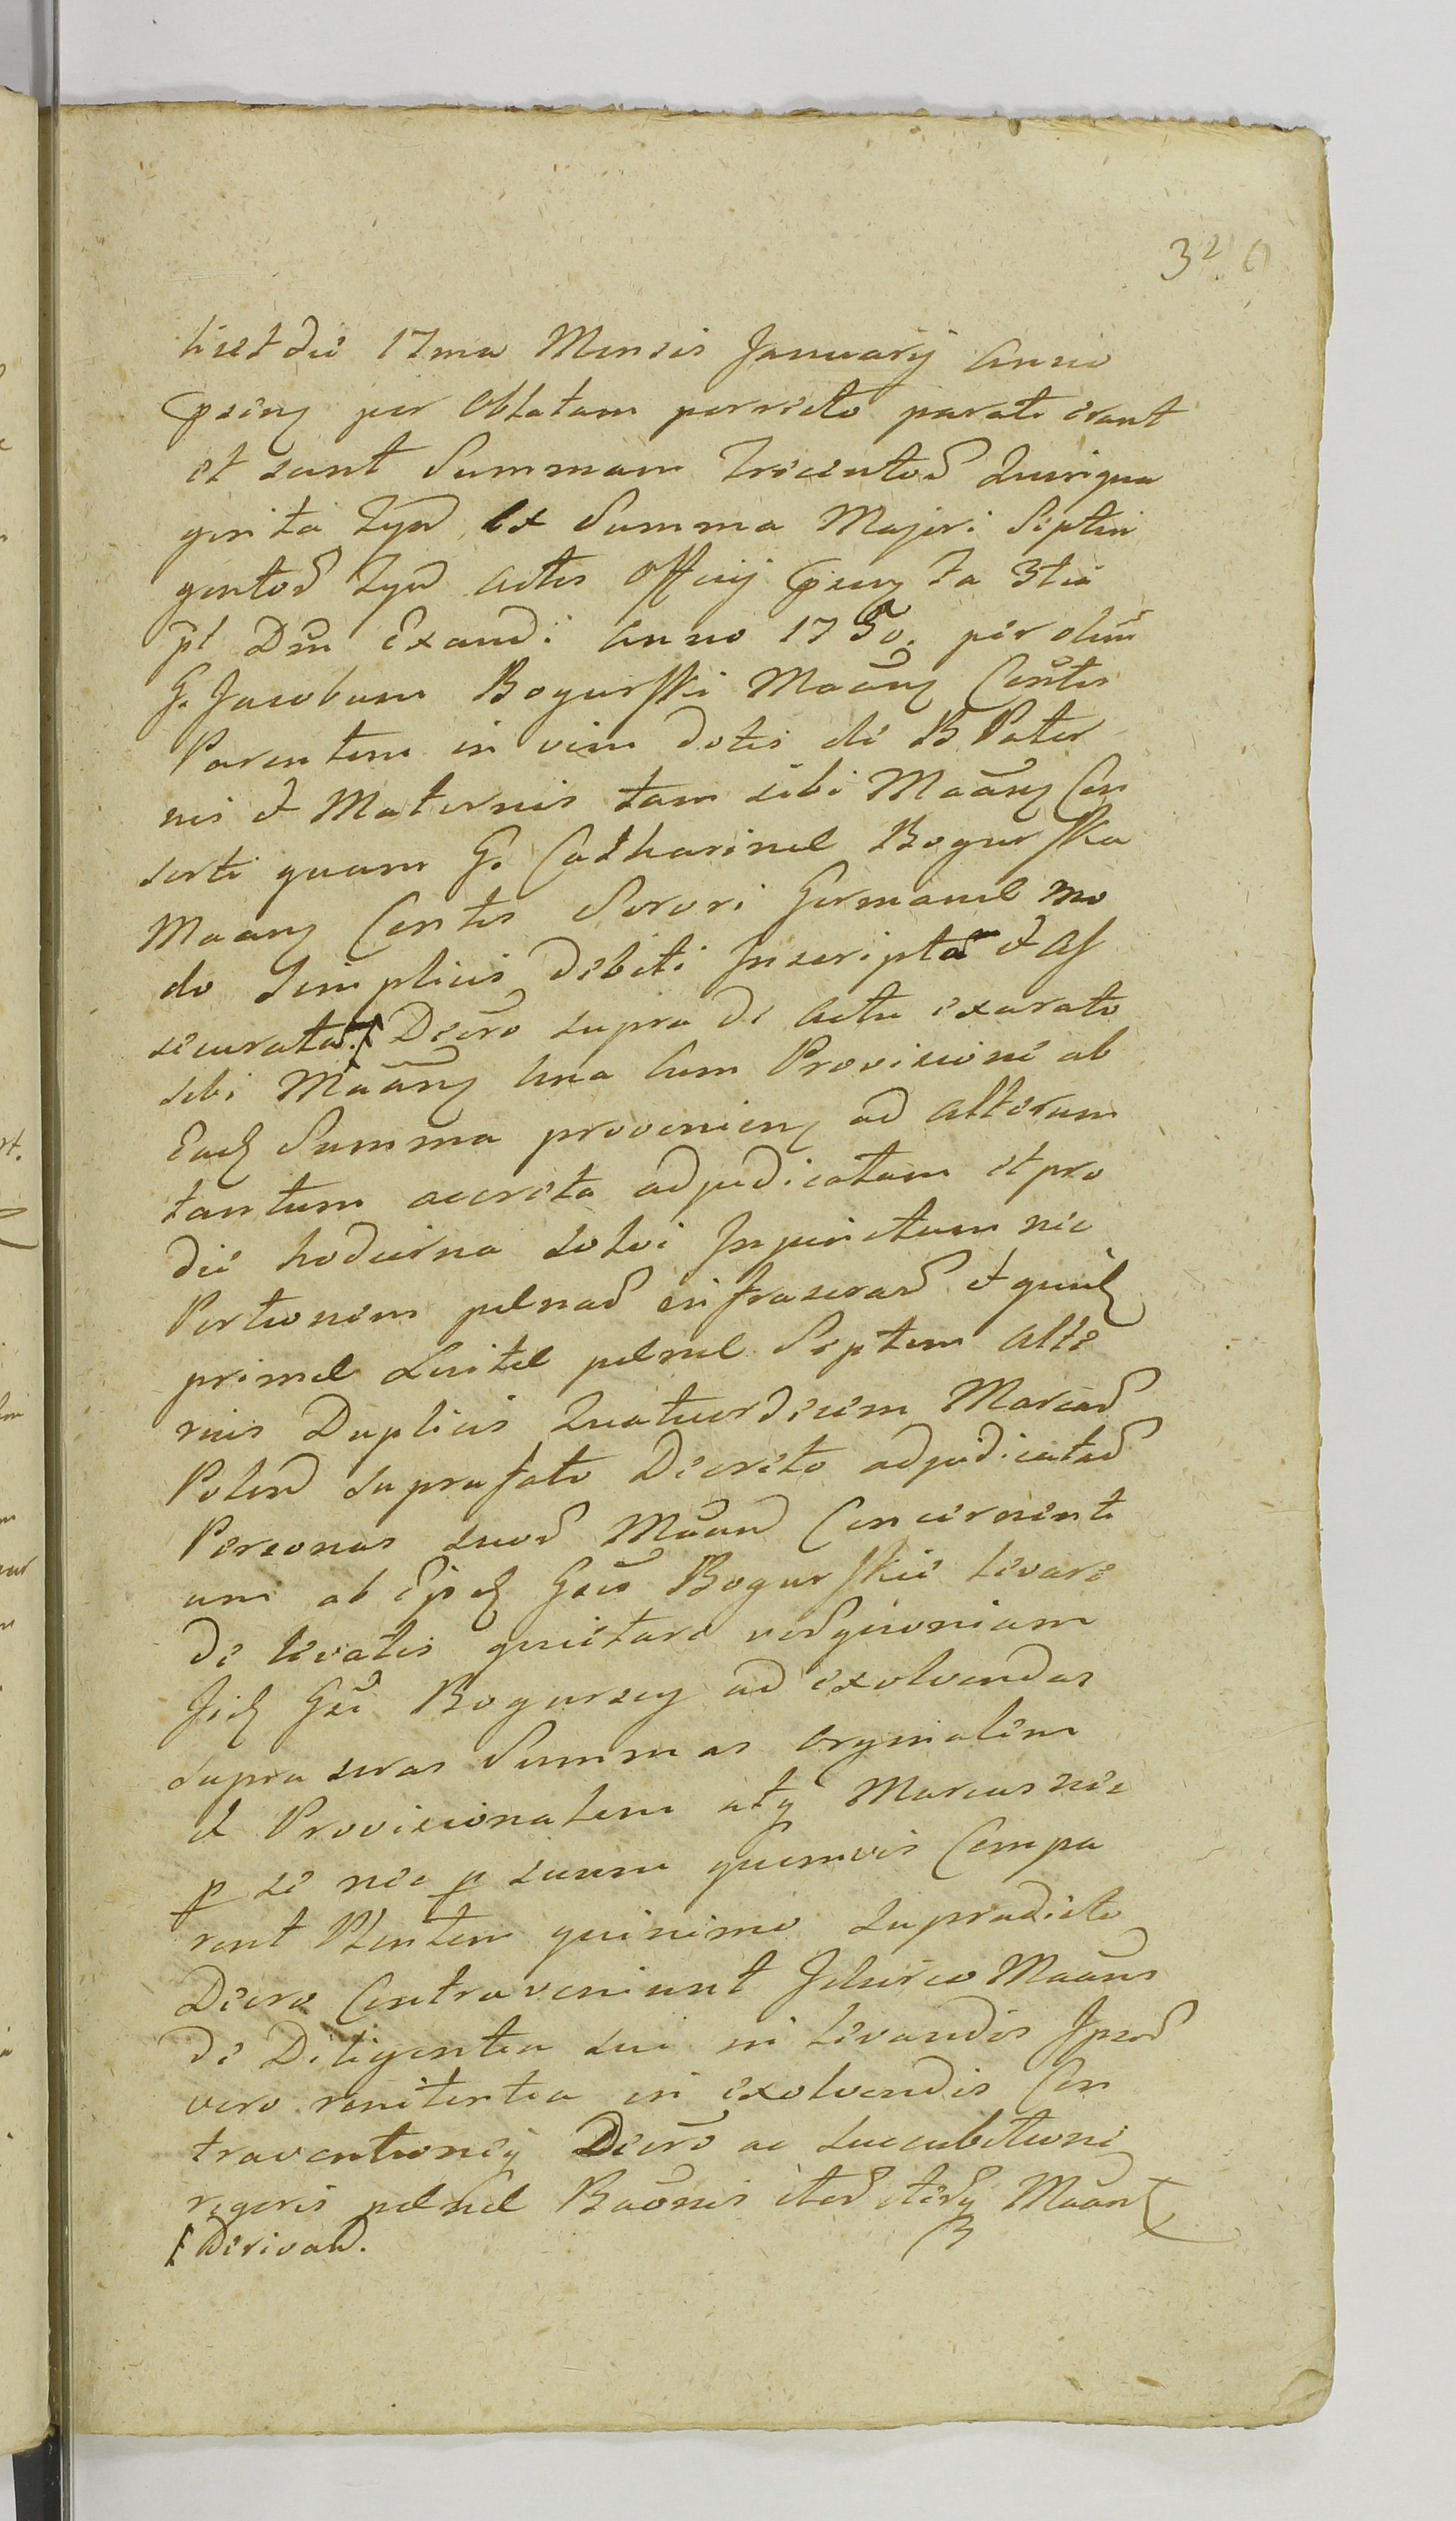 320
licet die 17ma Mensis Januarij Anno
pseny per Oblatam porrecto parati erant
et sunt Summam Trecentos Quinqua
ginta Tyn̄ Ex Summa Majori Septin
gentos Tyn̄ Actis Officij pseny Fa 3tia
pt Dm̄ Exaudi Anno 1750. per olim̄
G. Jacobum Bogurski Maāny Con̄tis
Parentem in vim dotis de B. Pater
nis et Maternis tam sibi Maāny Con
sorti quam G. Catharinæ Bogurska
Maany Contis Sorori Germanæ mo
do Simplicis debiti Inscripta et As
securata. Decro supra de actu exarato
sibi Maāny una cum Provisione ab
Eadz Summa provenieny ad alterum
tantum accreta adjudicatam et pro
die hodierna solvi Injunctam nec
Portionem pænas infrascras et quidz
primæ Luitæ pænæ Septem Alte
rius Duplicis Quatuordecim Marcas
Polon supra fato Decreto adjudicatas
Personas suas Maan Concernenti
um ab Epdz Gsis Bogurskie levare
de levatis quietare
Iidz Gsi Bogurscy ad exolvendas
supra scras Summas orginalem
et Provisionalem atq Marcas nec
p se nec p suum quemvis Compa
rent Plentem quinimo supradicto
Decro Contraveniunt Idcirco Maāns
de Diligentia sui in levandis Ipsos
vero renitentia in exolvendis Con
traventioneq Decro ac succubitione
rigoris pænæ Baōnis Maan
Derivan.